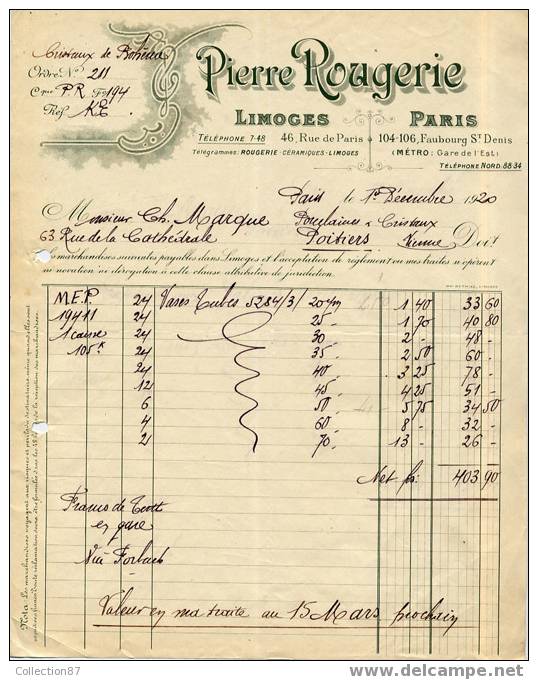 Cristaux de Bohême
Ordre No 211
Cque P.R Fo 194
Réf.
Pierre Rougerie
LIMOGES PARIS
TÉLÉPHONE 7-48 46, Rue de Paris 104-106, Faubourg St Denis
Télégrammes: ROUGERIE-CÉRAMIQUES-LIMOGES (MÉTRO: Gare de l'Est)
TÉLÉPHONE NORD: 88 34
Paris le 1er Décembre 1920
Monsieur Ch. Marque Porcelaines & Cristaux
63 Rue de la Cathédrale Poitiers Vienne Doit
les marchandises suivantes payables dans Limoges et l'acceptation de règlement ou mes traites n'opèrent
ni novation ni dérogation à cette clause attributive de juridiction.
M.E.P. 24 Vases Tubes 5284/3/20 c/m 1 40 33 60
19411 24 25 - 1 70 40 80
1 caisse 24 30 - 2 - 48 -
105 K 24 35 - 2 50 60 -
24 40 - 3 25 78 -
12 45 - 4 25 51 -
6 50 - 5 75 34 50
4 60 - 8 - 32 -
2 70 - 13 - 26 -
Net fs: 403 90
Franco de
en gare
Via Forbach
Valeur en ma traite au 15 Mars prochain
Nota: Les marchandises voyagent aux risques et périls des destinataires
Collection87
delcampe.net